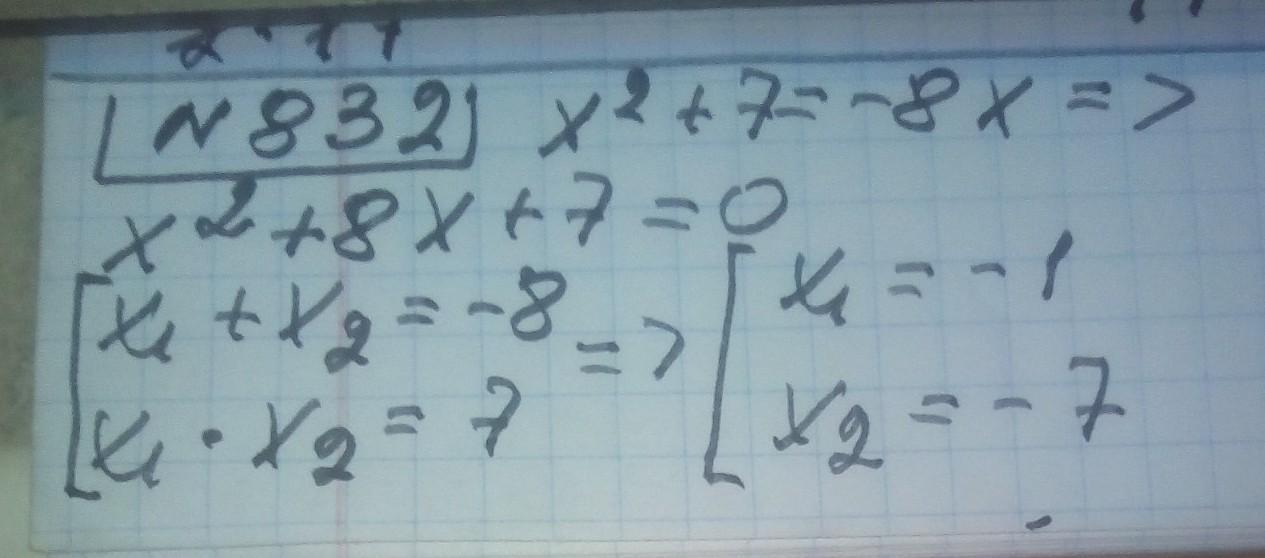 N832 x² + 7 = -8x =>
x² + 8x + 7 = 0
[ x₁ + x₂ = -8 => [ x₁ = -1
x₁ · x₂ = 7 x₂ = -7